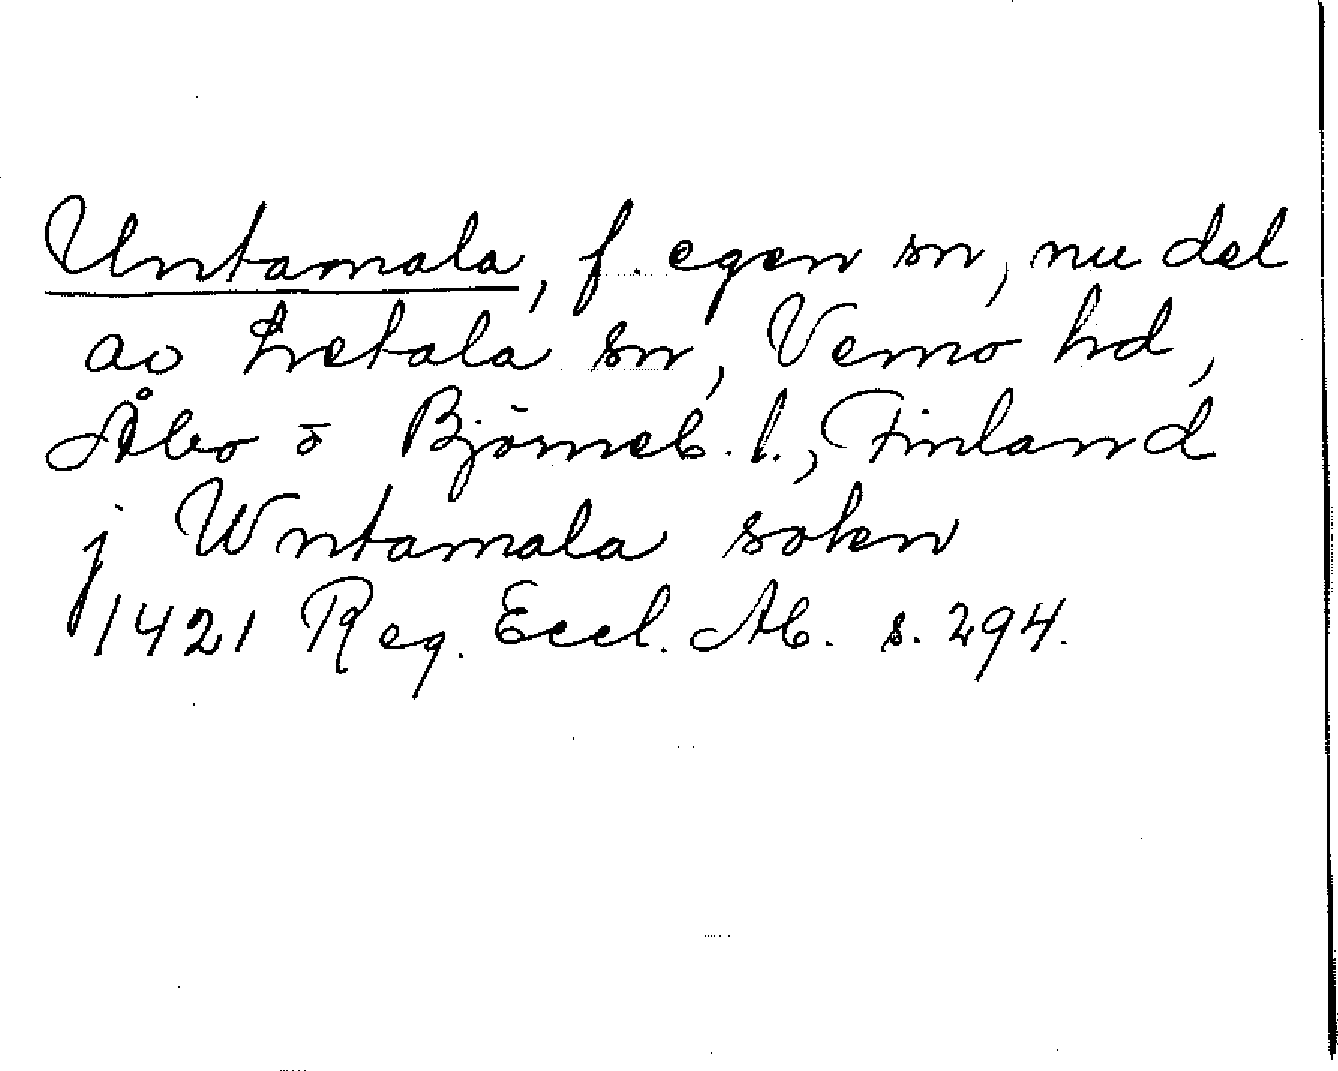 Untamala, f. egen sn, nu del
av Letala sn, Vemo hd,
Åbo o Björneb. l., Finland
j Wntamala sokn
1421 Reg. Eccl. Ab. s. 294.